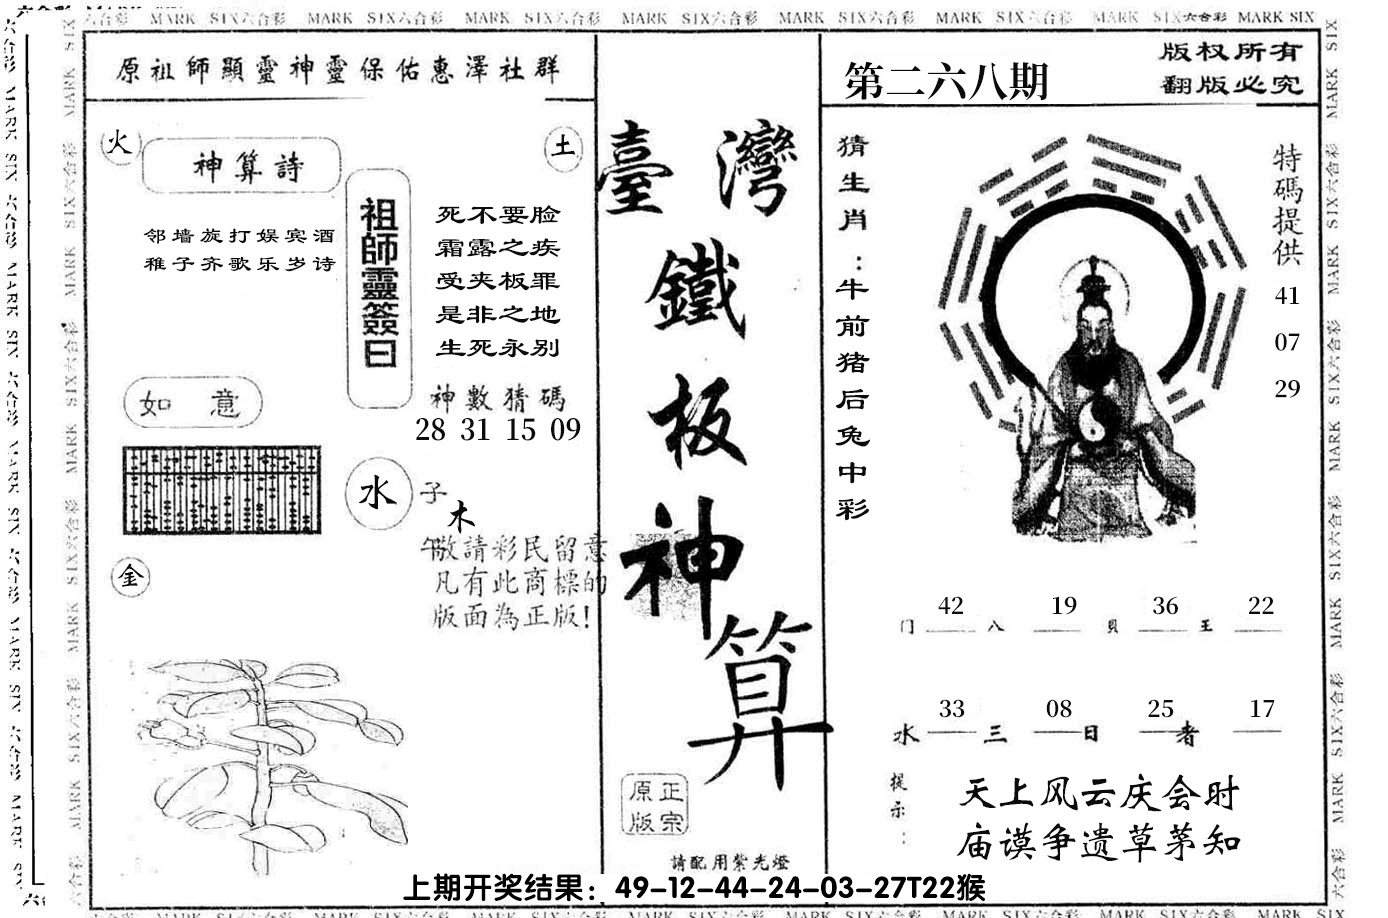 MARK SIX六合彩 MARK SIX六合彩 MARK SIX六合彩 MARK SIX六合彩 MARK SIX六合彩 MARK SIX六合彩 MARK SIX六合彩 MARK SIX
原祖師顯靈神靈保佑惠澤社群
火
土
神算詩
邻墙旋打娱宾酒
稚子齐歌乐岁诗
祖師靈簽曰
死不要脸
霜露之疾
受夹板罪
是非之地
生死永别
神數猜碼
28 31 15 09
如意
水
子
木
午
敬請彩民留意
凡有此商標的
版面為正版!
金
臺灣
鐵
板
神
算
正宗
原版
請配用紫光燈
第二六八期
版权所有
翻版必究
猜生肖：牛前猪后兔中彩
特碼提供
41
07
29
42 19 36 22
门 八 貝 王
33 08 25 17
水 三 日 者
提示：
天上风云庆会时
庙谟争遗草茅知
上期开奖结果：49-12-44-24-03-27T22猴